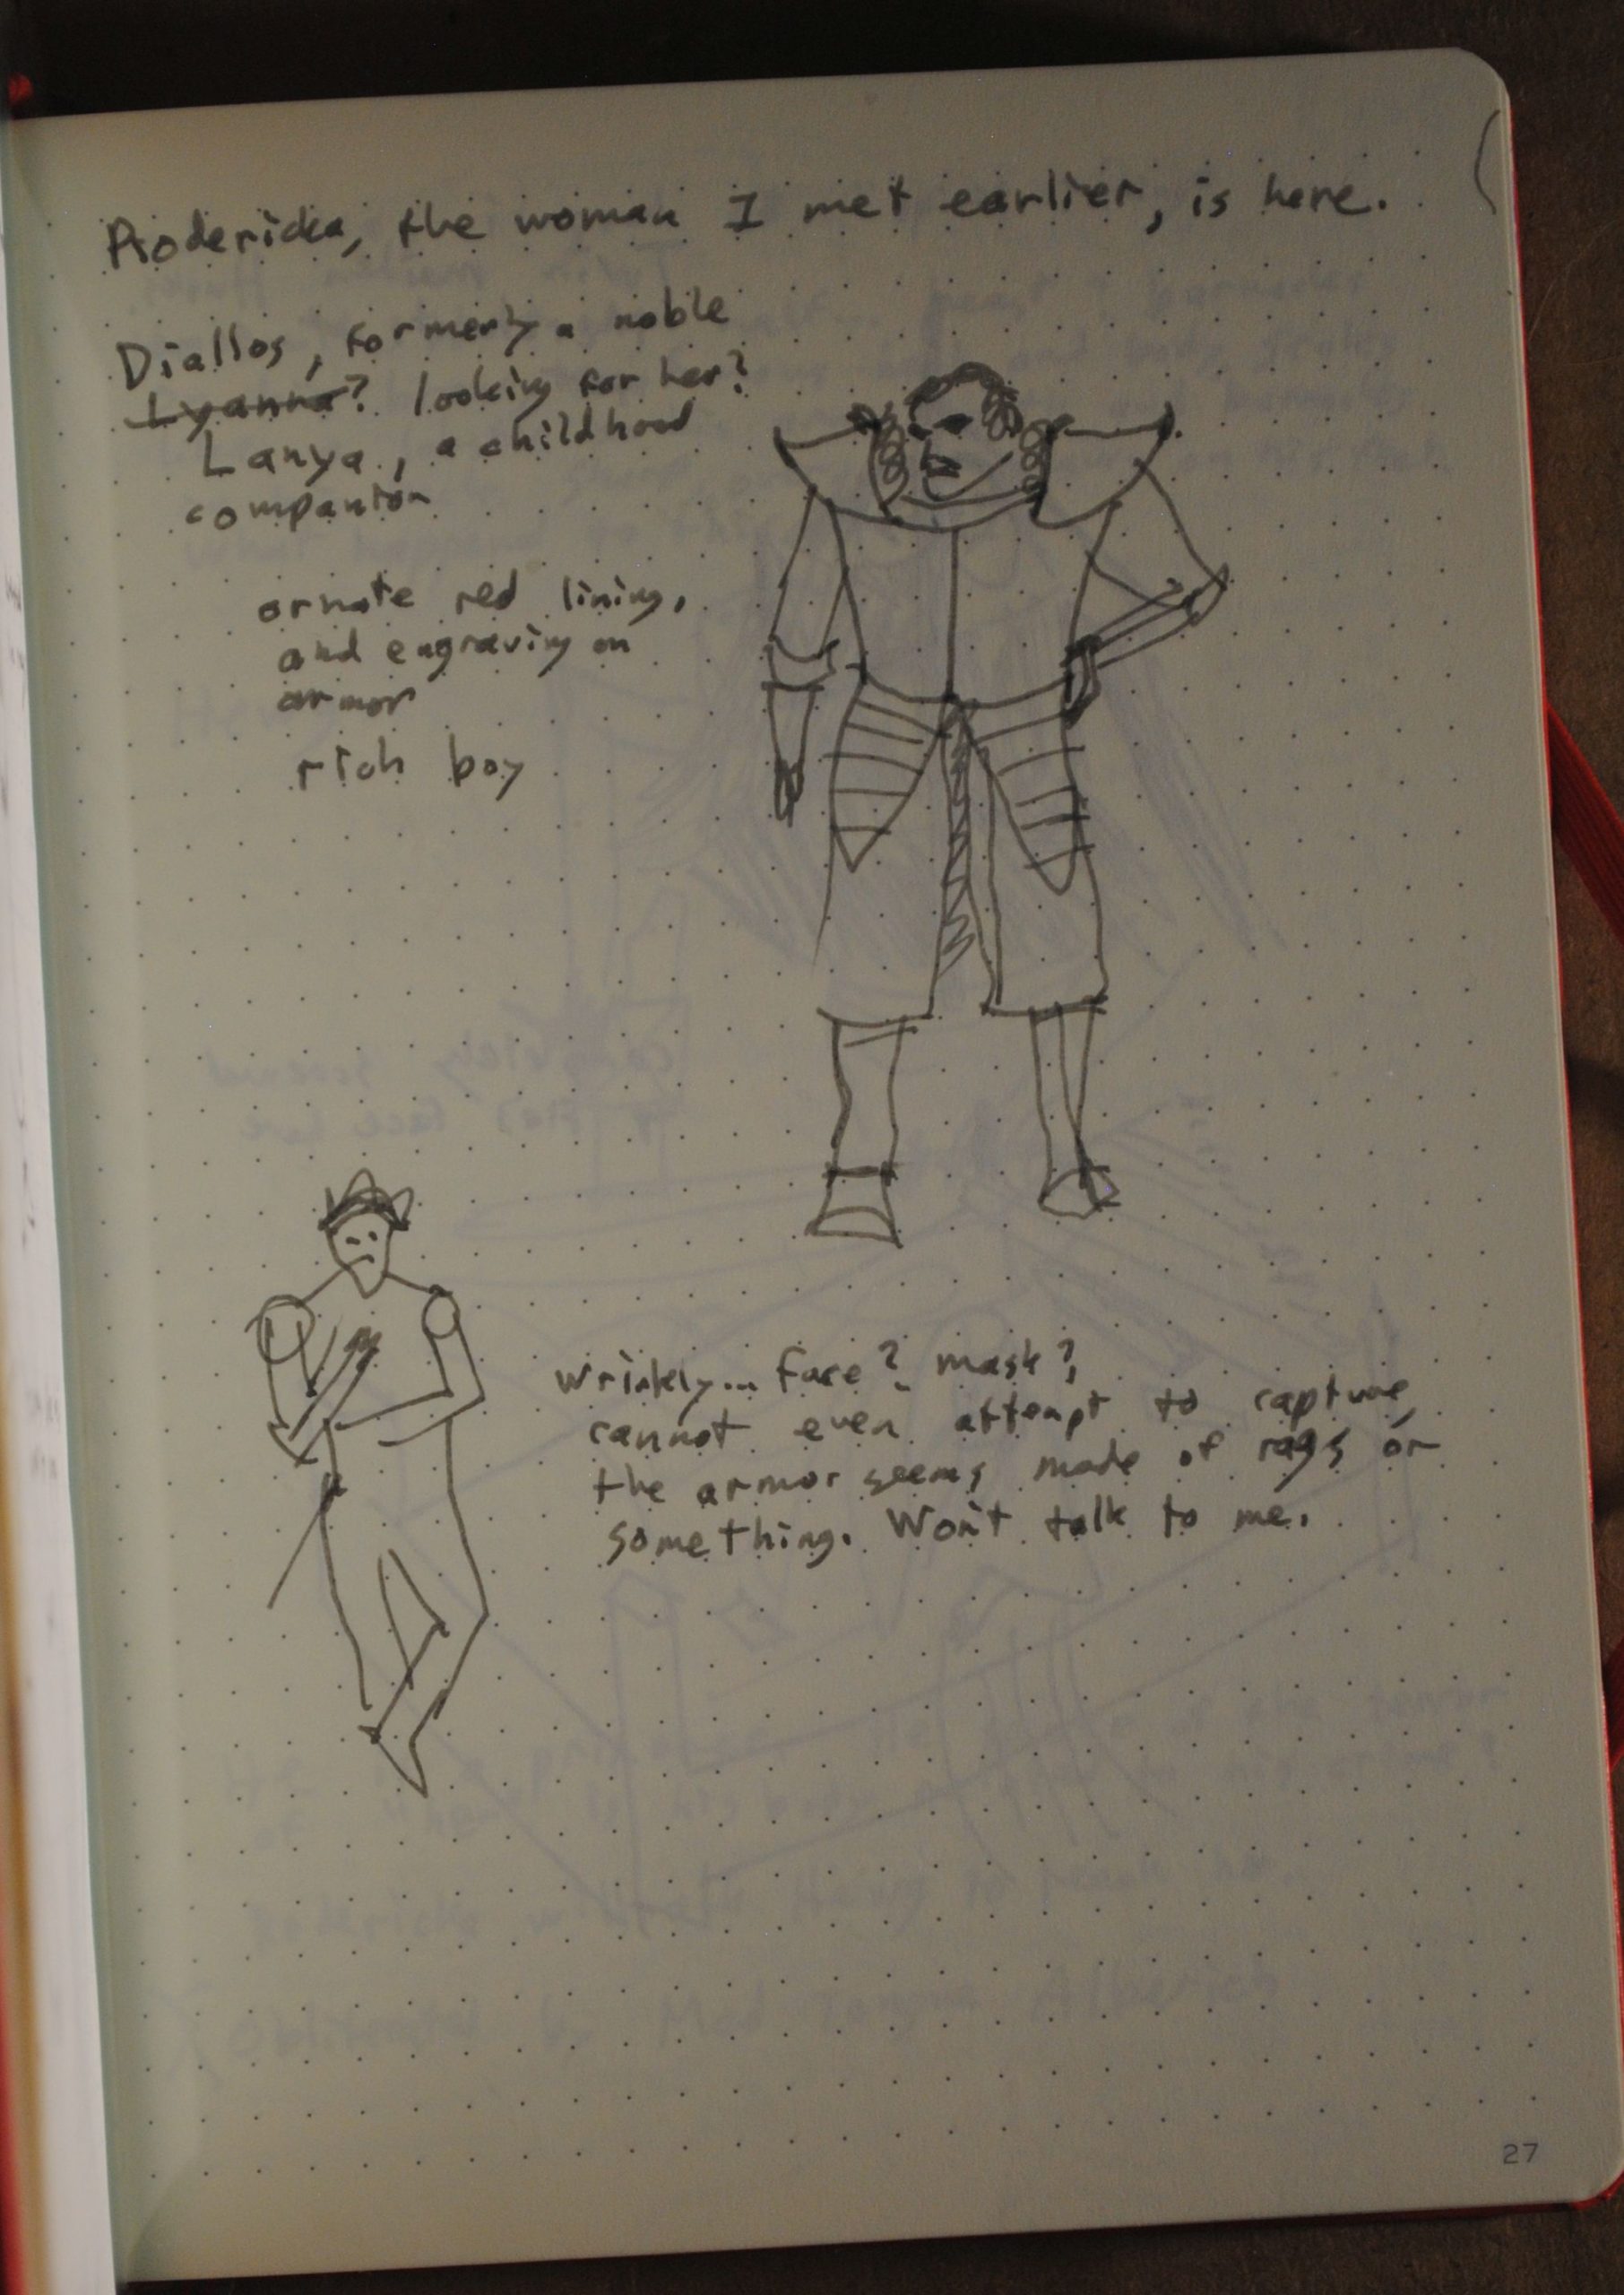 Rodericka, the woman I met earlier, is here.
Diallos, formerly a noble
Lyanna? looking for her?
Lanya, a childhood
companion
ornate red lining,
and engraving on
armor
rich boy
Wrinkly... face? mask?
cannot even attempt to capture,
the armor seems made of rags or
something. Won't talk to me.
27